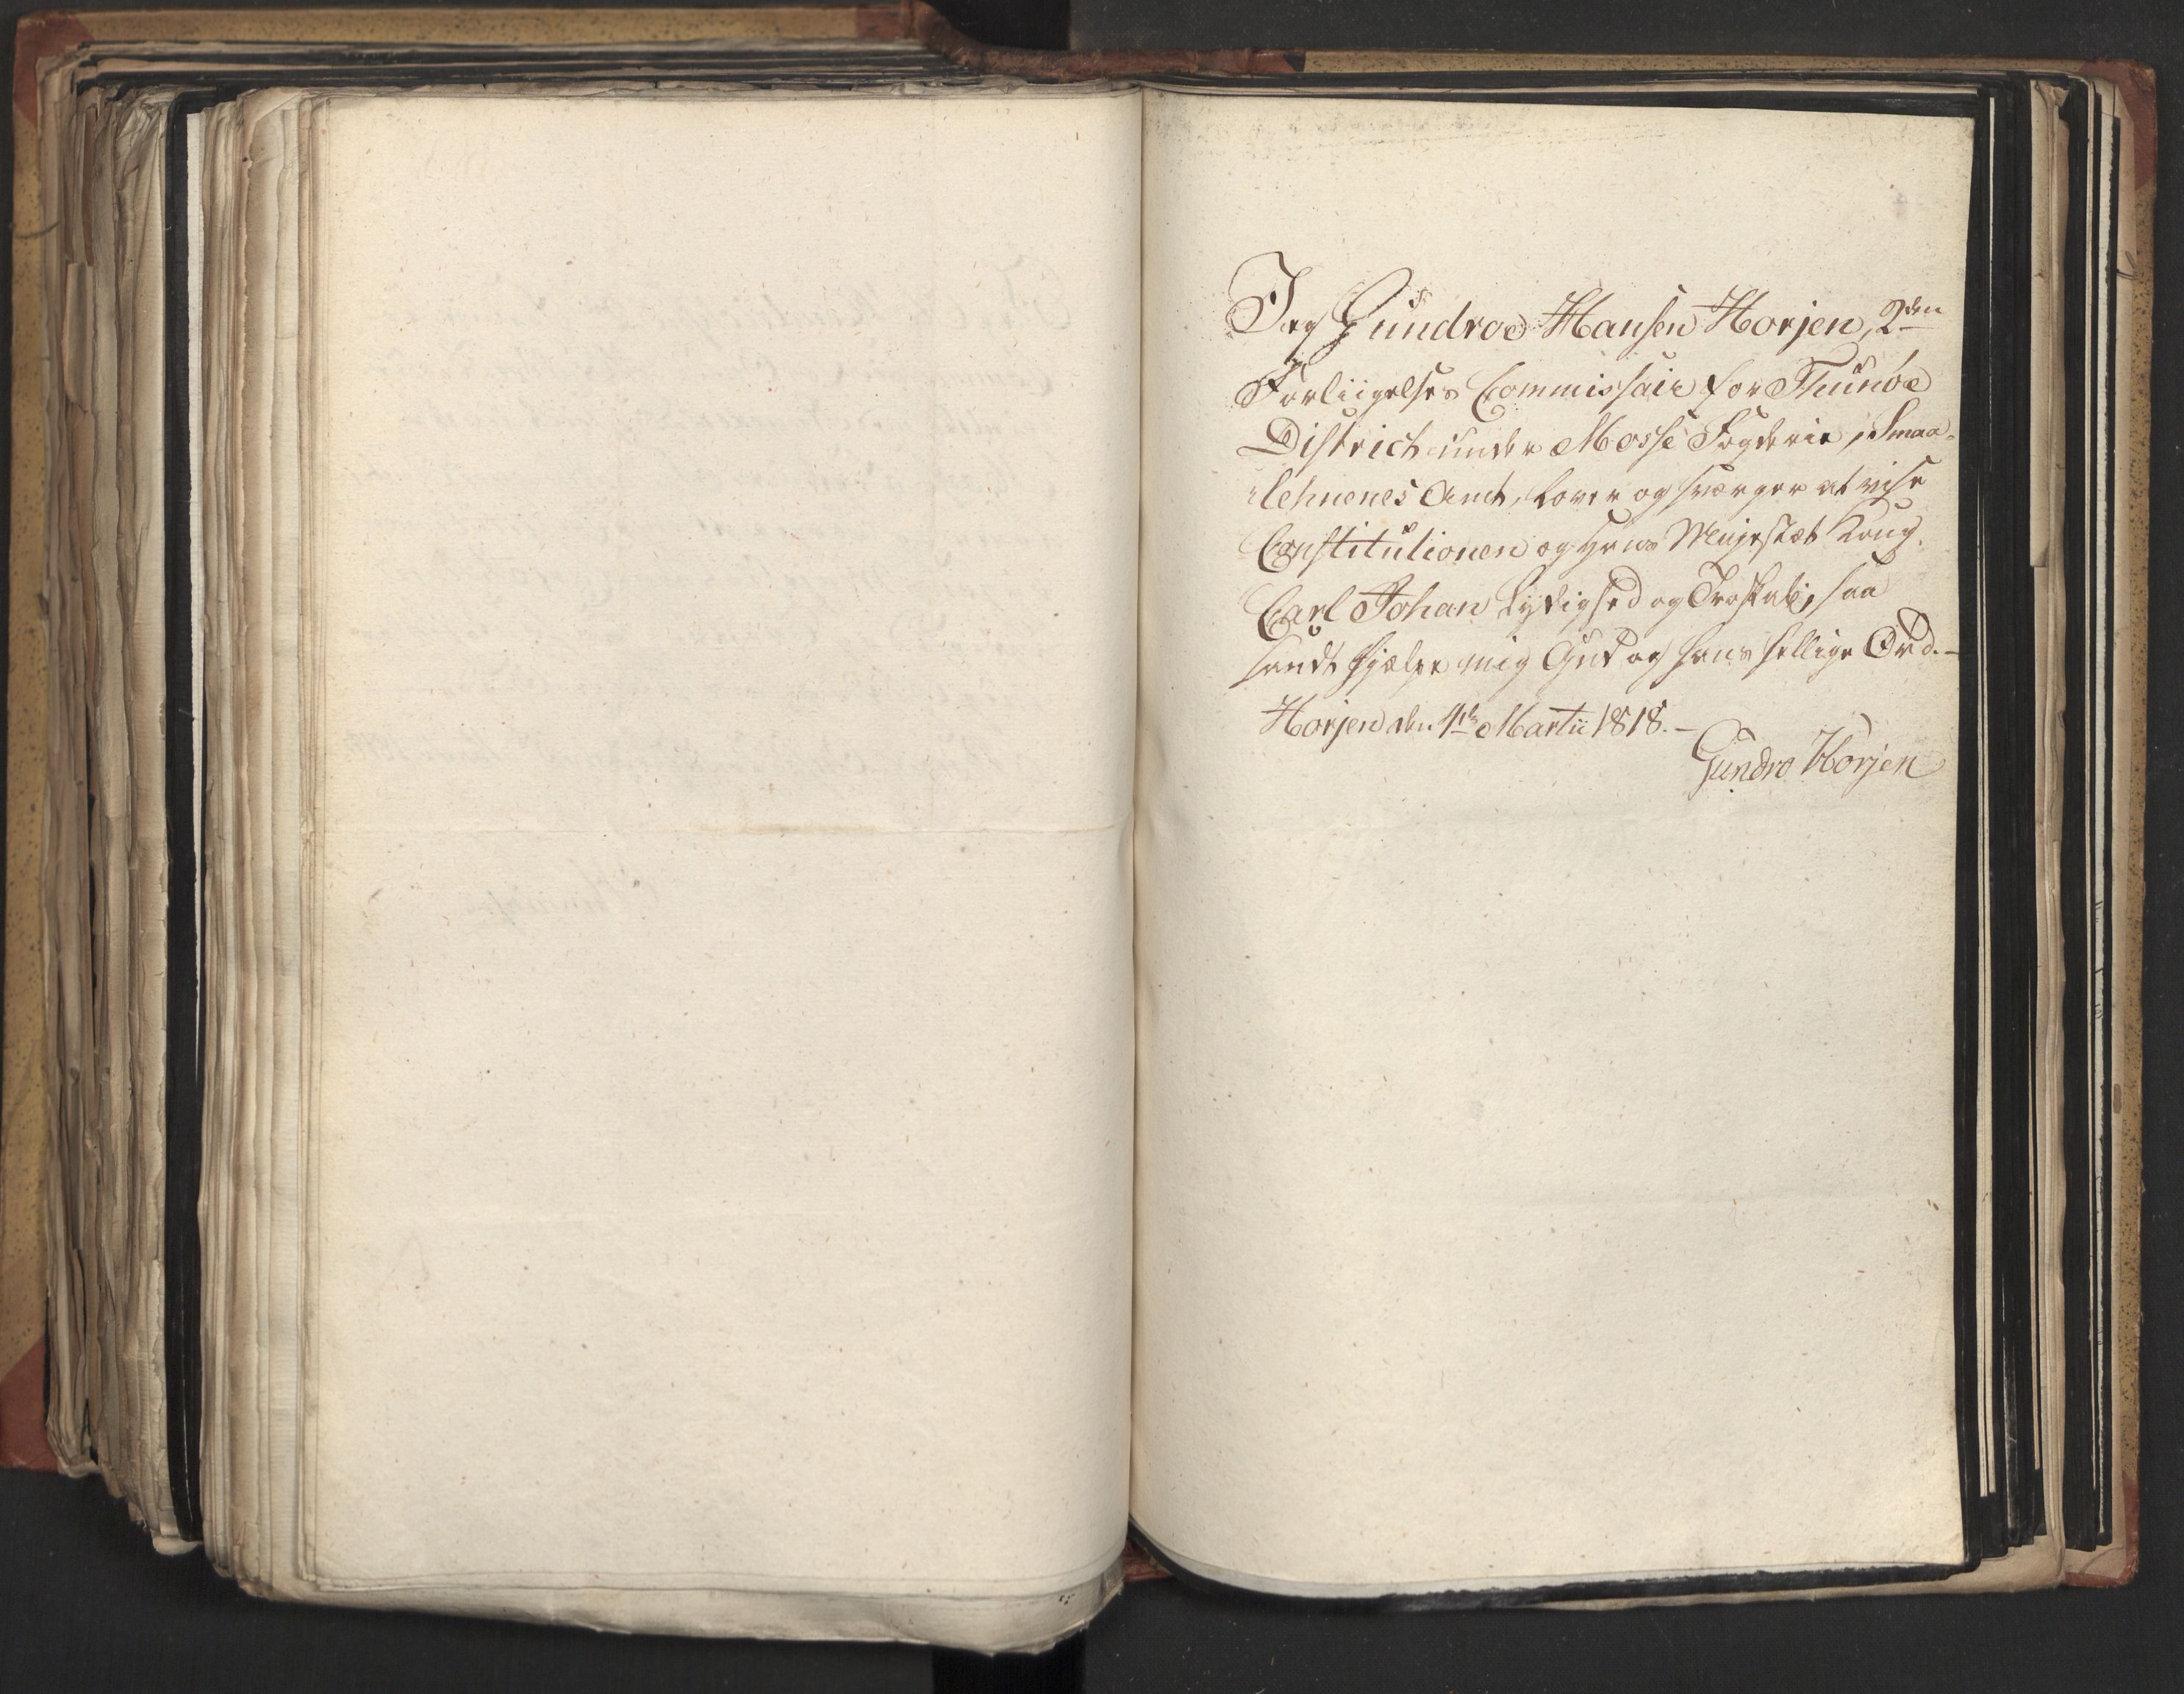 Jeg Gundroe Hansen Horjen, 2den
Forliigelses Commissair for Thunøe
District under Mosse Fogderie, Smaa-
lehnenes Amt, lover og sværger at vise
Constitutionen og Hans Majestæt Kong
Carl Johan Lydighed og Troskab, saa
sandt hjælpe mig Gud og hans hellige Ord.-
Horjen den 4de Martii 1818.-
Gundro Horjen